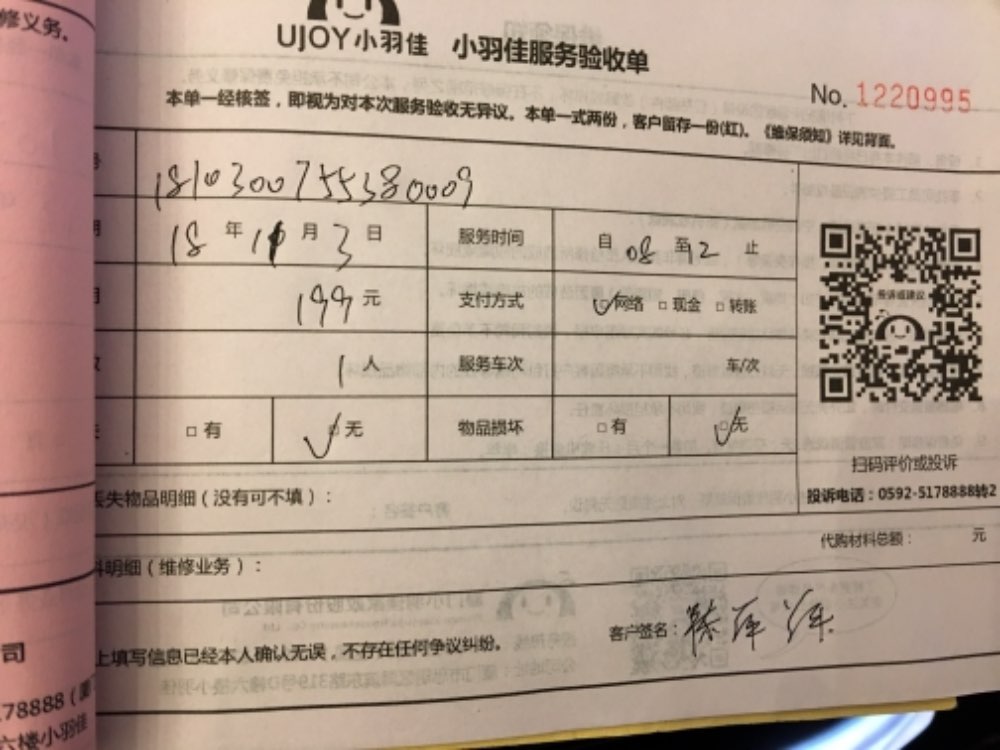 修义务。
UJOY小羽佳 小羽佳服务验收单
No. 1220995
本单一经核签，即视为对本次服务验收无异议。本单一式两份，客户留存一份(红)。《维保须知》详见背面。
号 1810300755380009
期 18 年 11 月 3 日 服务时间 自 08 至 12 止
199 元 支付方式 ☑网络 □现金 □转账
1 人 服务车次 车/次
□有 ☑无 物品损坏 □有 ☑无
投诉或建议
扫码评价或投诉
投诉电话：0592-5178888转2
丢失物品明细（没有可不填）：
代购材料总额： 元
料明细（维修业务）：
客户签名：
上填写信息已经本人确认无误，不存在任何争议纠纷。
司
78888（厦
六楼小羽佳